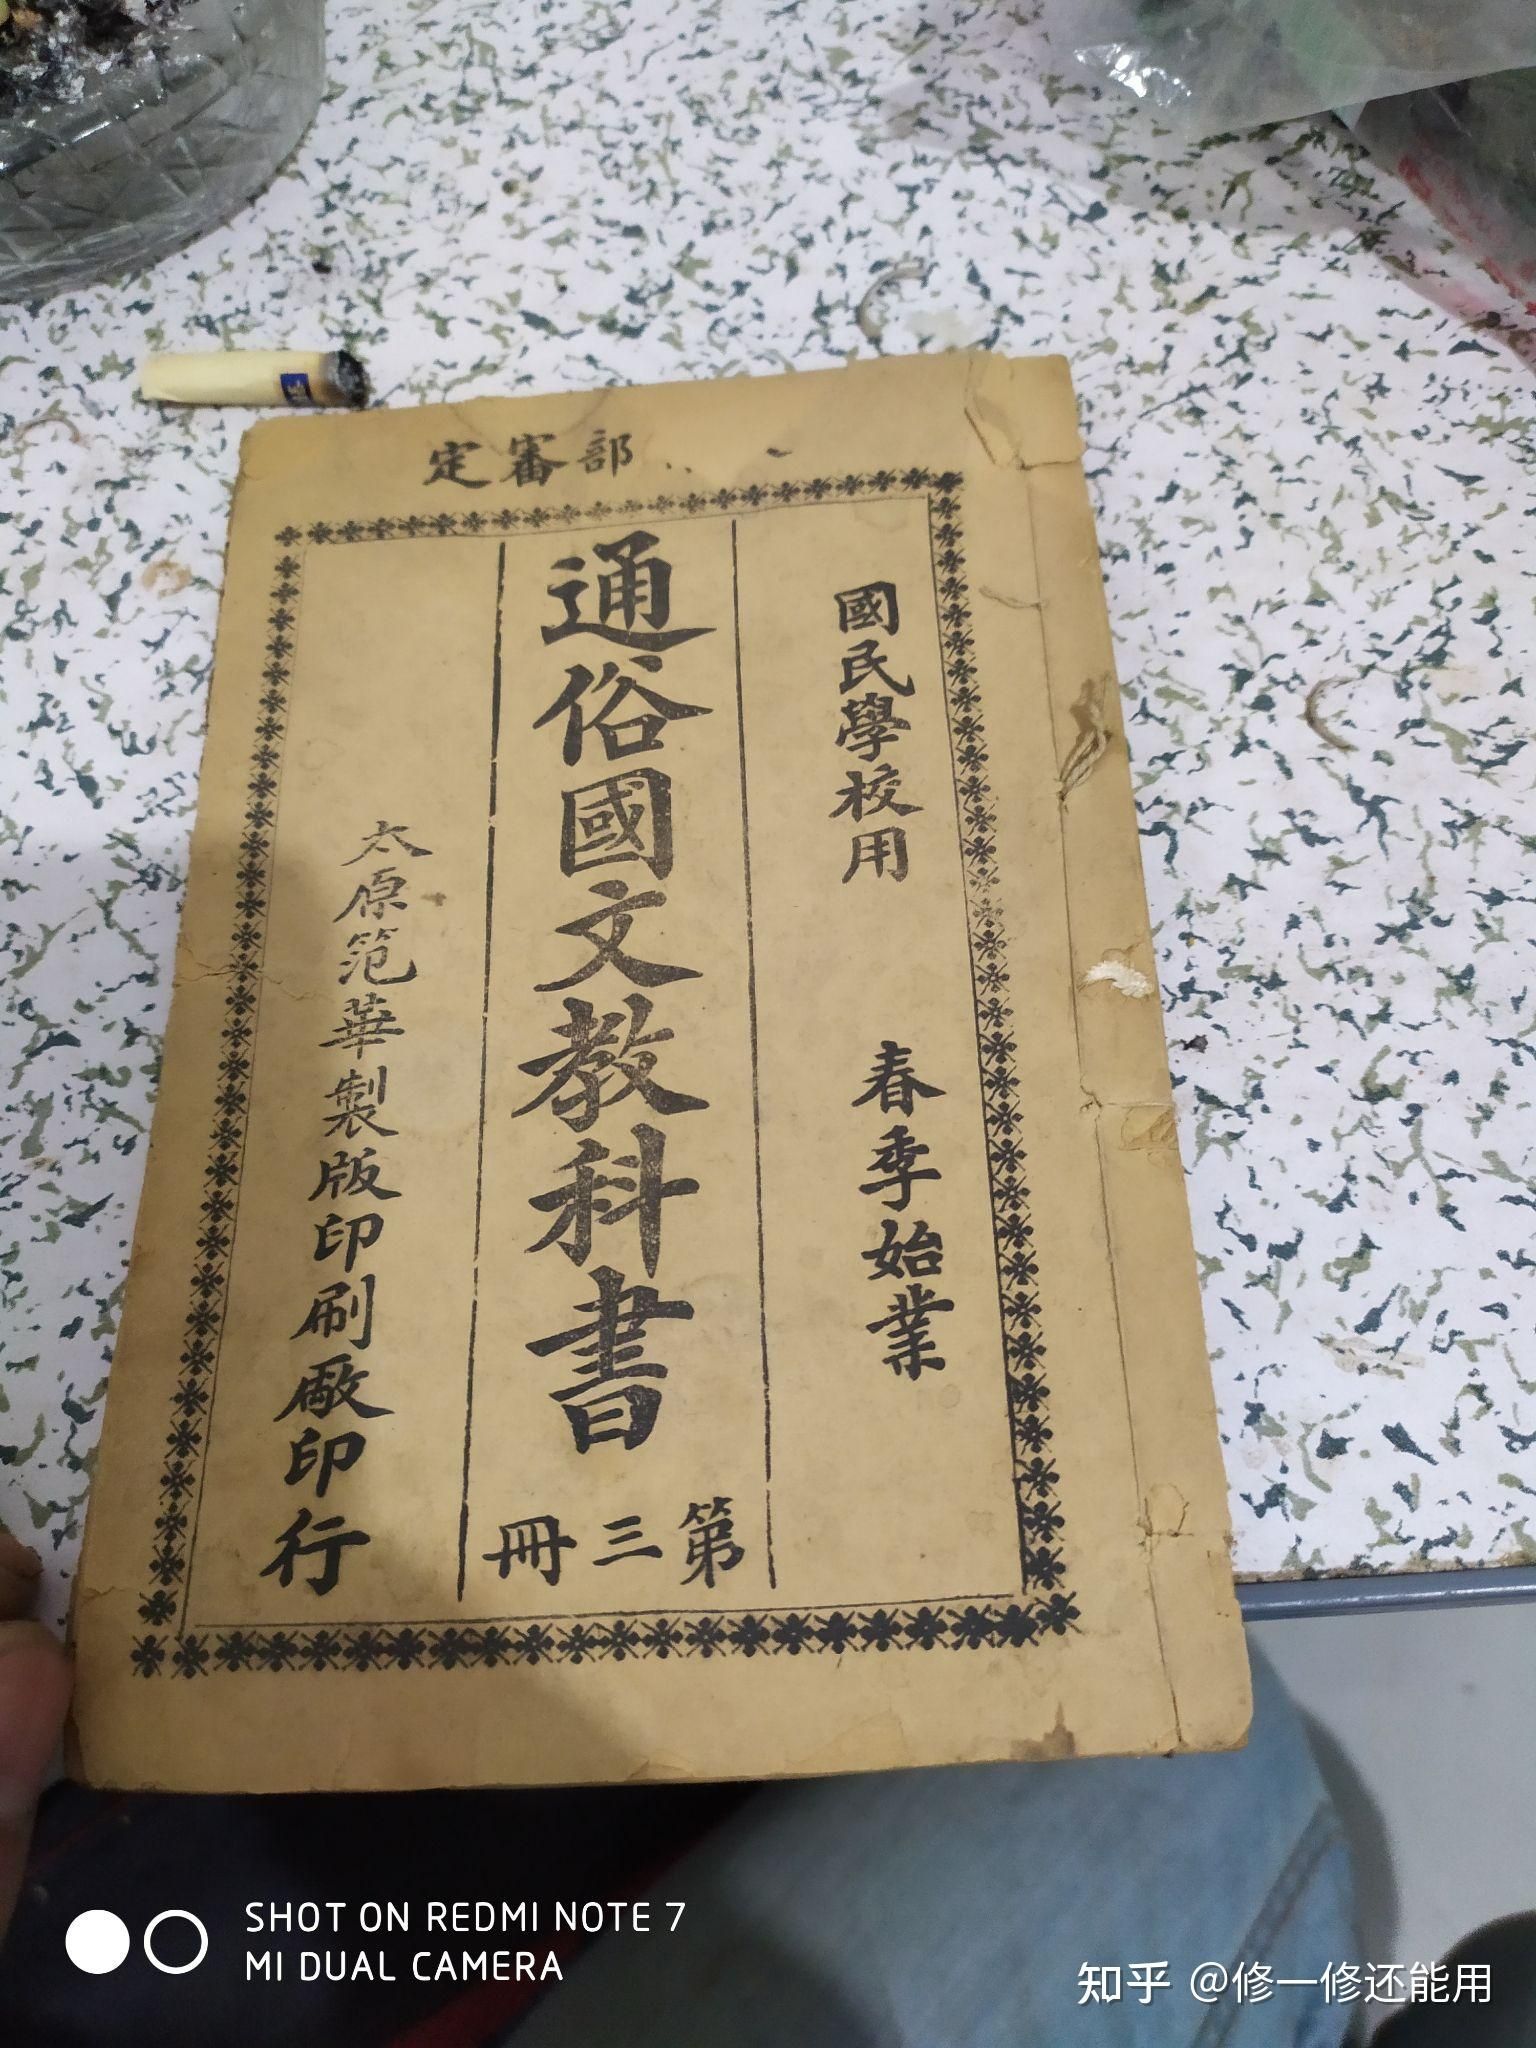 部審定
國民學校用 春季始業
通俗國文教科書
第三冊
太原范華製版印刷廠印行
SHOT ON REDMI NOTE 7
MI DUAL CAMERA
知乎 @修一修还能用